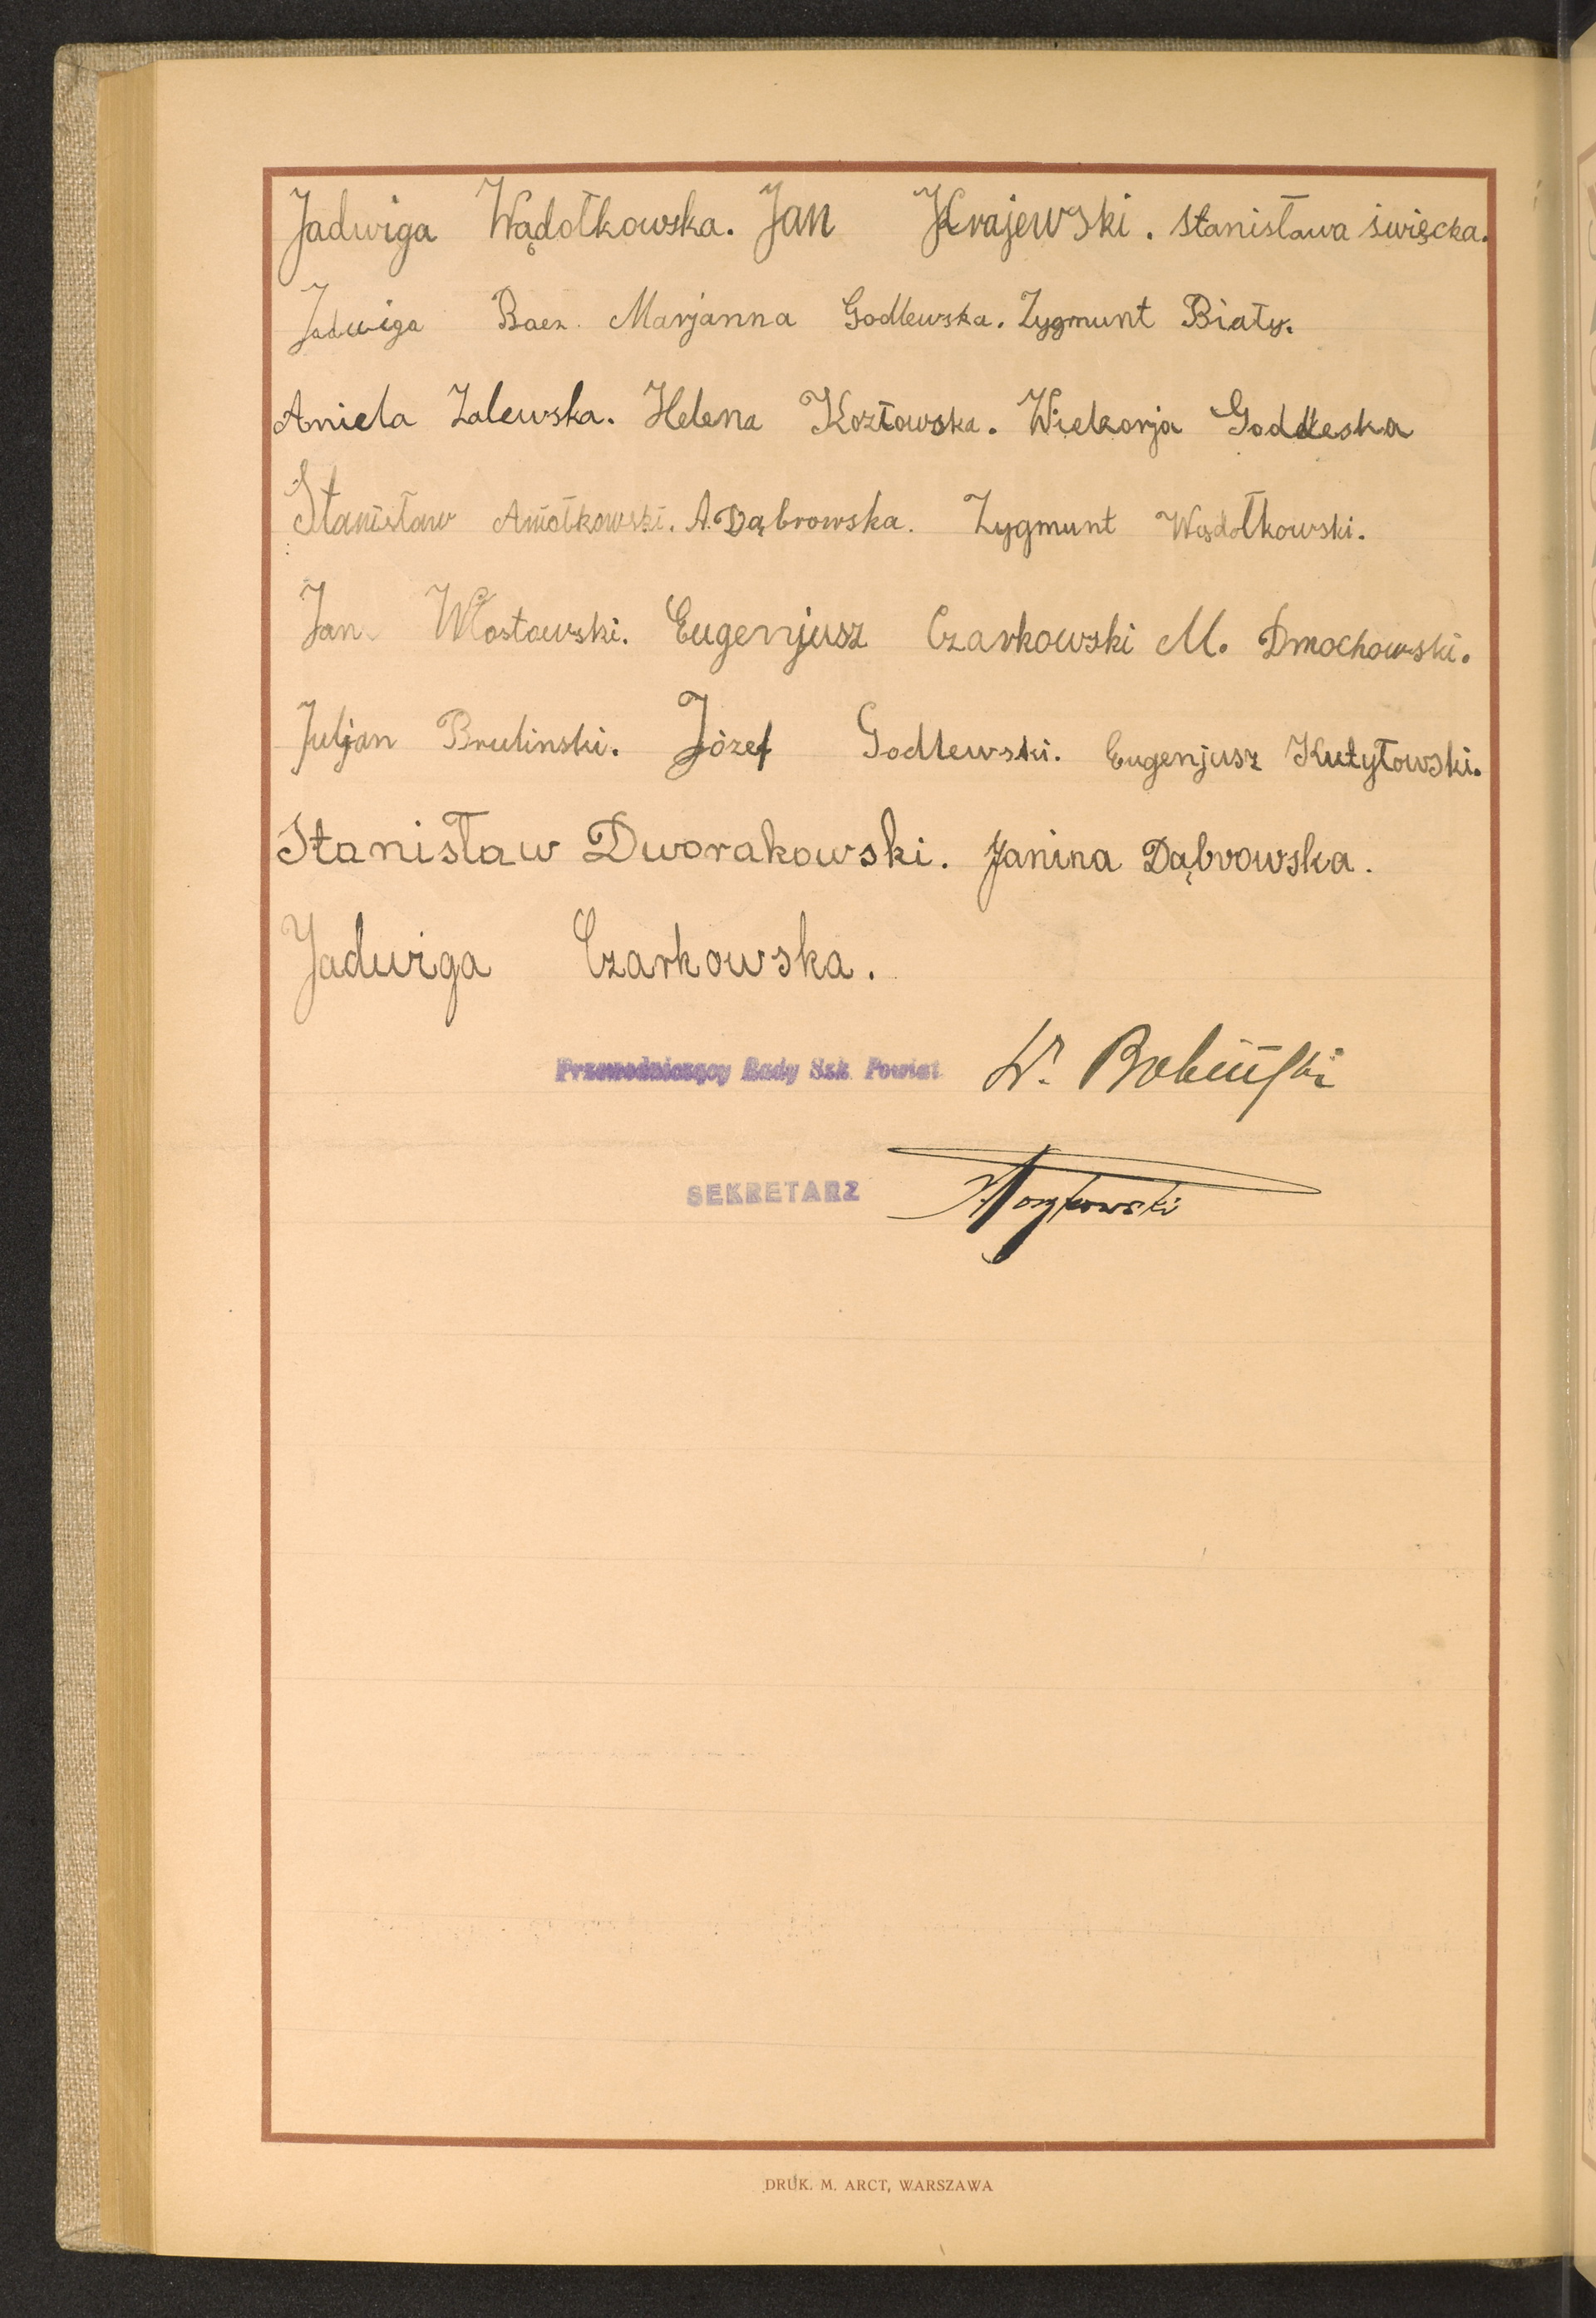 Jadwiga Wądołkowska. Jan Krajewski. Stanisława święcka.
Jadwiga Baen. Marjanna Godlewska. Zygmunt Biały.
Aniela Zalewska. Helena Kozłowska. Wiekorja Godleska
Stanisław A. Dąbrowska. Zygmunt Wądołkowski.
Jan Włostowski. Eugenjusz Czarkowski M. Dmochowski.
Juljan Brulinski. Józef Godlewski. Eugenjusz Kutyłowski.
Stanisław Dworakowski. Janina Dąbrowska.
Jadwiga Czarkowska.
Przewodniczący Rady Szk. Powiat W. Bobiński
SEKRETARZ
DRUK. M. ARCT, WARSZAWA